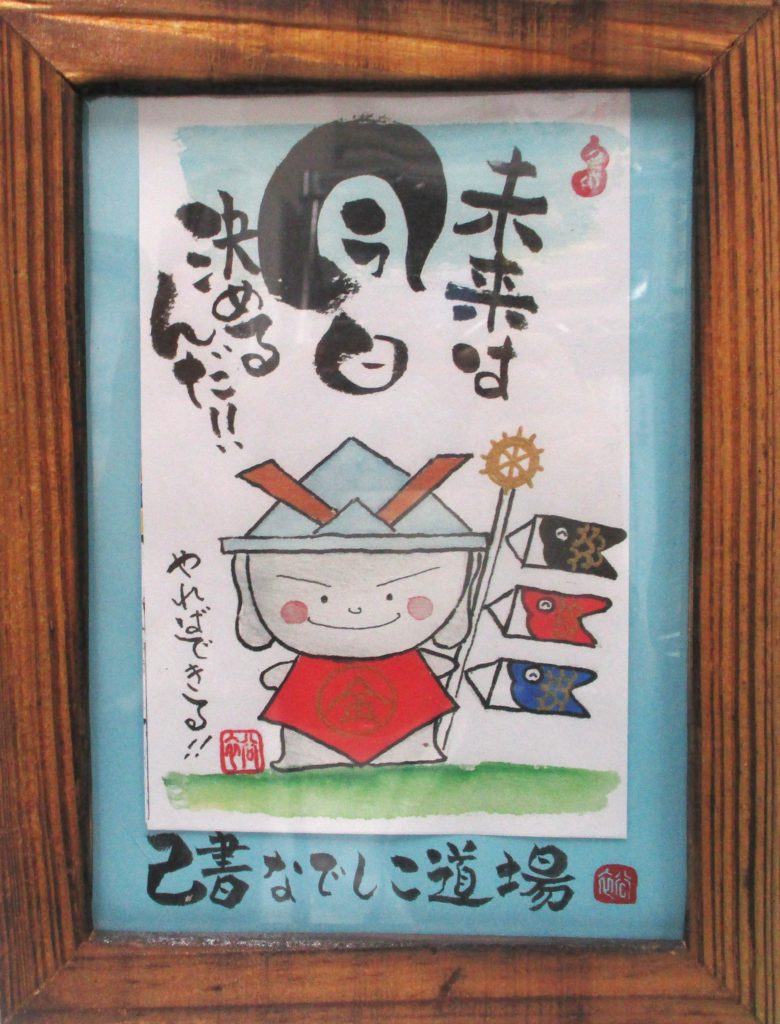 未来は
今日
決める
んだ!!
やればできる!!
金
己書なでしこ道場